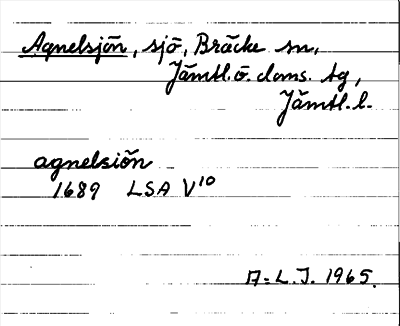 Agnelsjön, sjö, Bräcke sn,
Jämtl. ö. doms. tg,
Jämtl. l.
agnelsiön
1689 LSA V¹⁰
A-L.J. 1965.